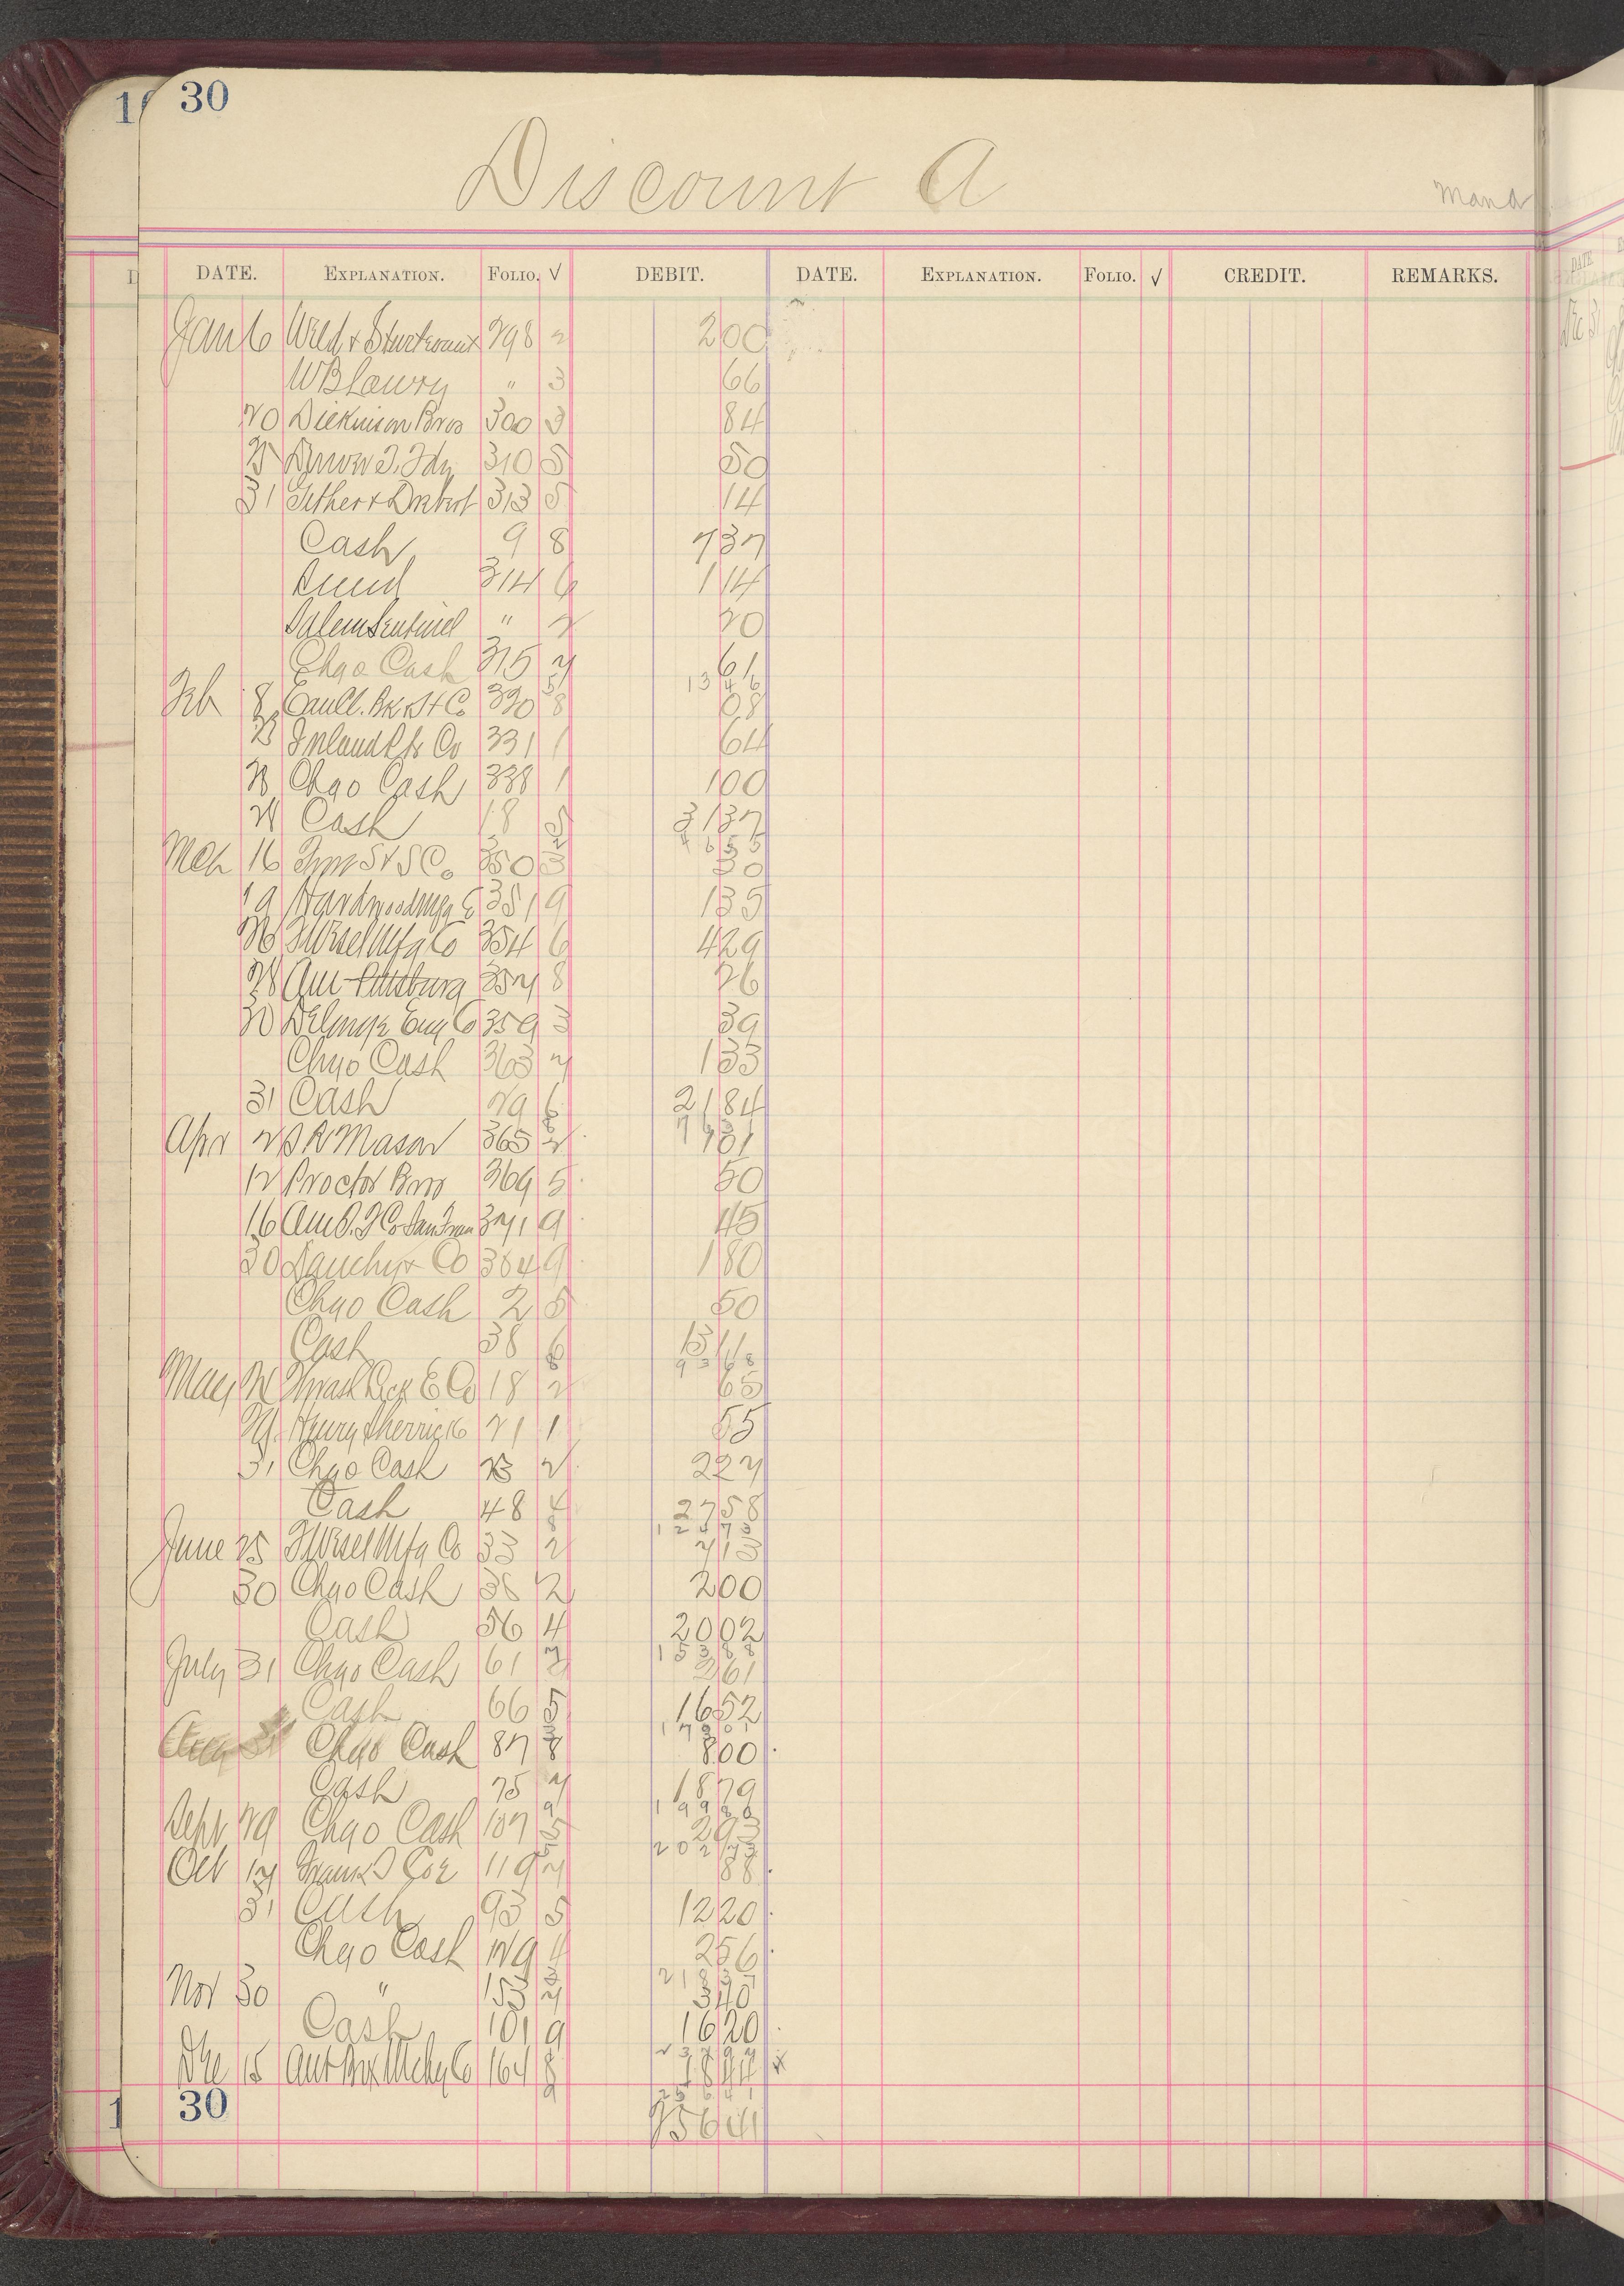 30
Discount A
Mana
DATE. EXPLANATION. FOLIO. √ DEBIT. DATE. EXPLANATION. FOLIO. √ CREDIT. REMARKS.
Jan 6 Wild & 298 2 200
WB Lawry " 3 66
20 Dickinson Bros 300 3 84
310 5 50
31 313 5 14
Cash 9 8 737
314 6 114
Salem Sentinel " 2 20
Chgo Cash 315 7 61
1346
Feb 8 320 8 08
23 Inland Co 331 1 64
28 Chgo Cash 338 1 100
Cash 18 5 3137
4655
Mch 16 S & S Co. 350 3 30
19 Hardwood Mfg Co 351 9 135
26 F Wesel Mfg Co 354 6 429
28 Am Pittsburg 357 8 26
30 Eng Co 359 3 39
Chgo Cash 363 7 133
31 Cash 29 6 2184
Apr 2 S R Mason 365 2 101
12 Proctor Bros 369 5 50
16 Am S. F Co San Fran 371 9 45
30 & Co 384 9 180
Chgo Cash 2 5 50
Cash 38 6 1311
9368
May Co 18 2 65
Henry Sherrick 21 1 55
31 Chgo Cash 23 2 227
Cash 48 4 2758
12473
June 25 F Wesel Mfg Co 33 2 713
30 Chgo Cash 38 2 200
Cash 56 4 2002
15388
July 31 Chgo Cash 61 261
Cash 66 5 1652
17301
Aug 31 Chgo Cash 87 8 800
Cash 75 7 1879
19980
Sept 29 Chgo Cash 107 5 293
20273
Oct 17 Frank J Coe 119 7 88
31 Cash 93 5 1220
Chgo Cash 129 4 256
21837
Nov 30 " 153 7 340
Cash 101 9 1620
23797
Dec 15 Mchy Co 164 8 1844
25641
30 25641